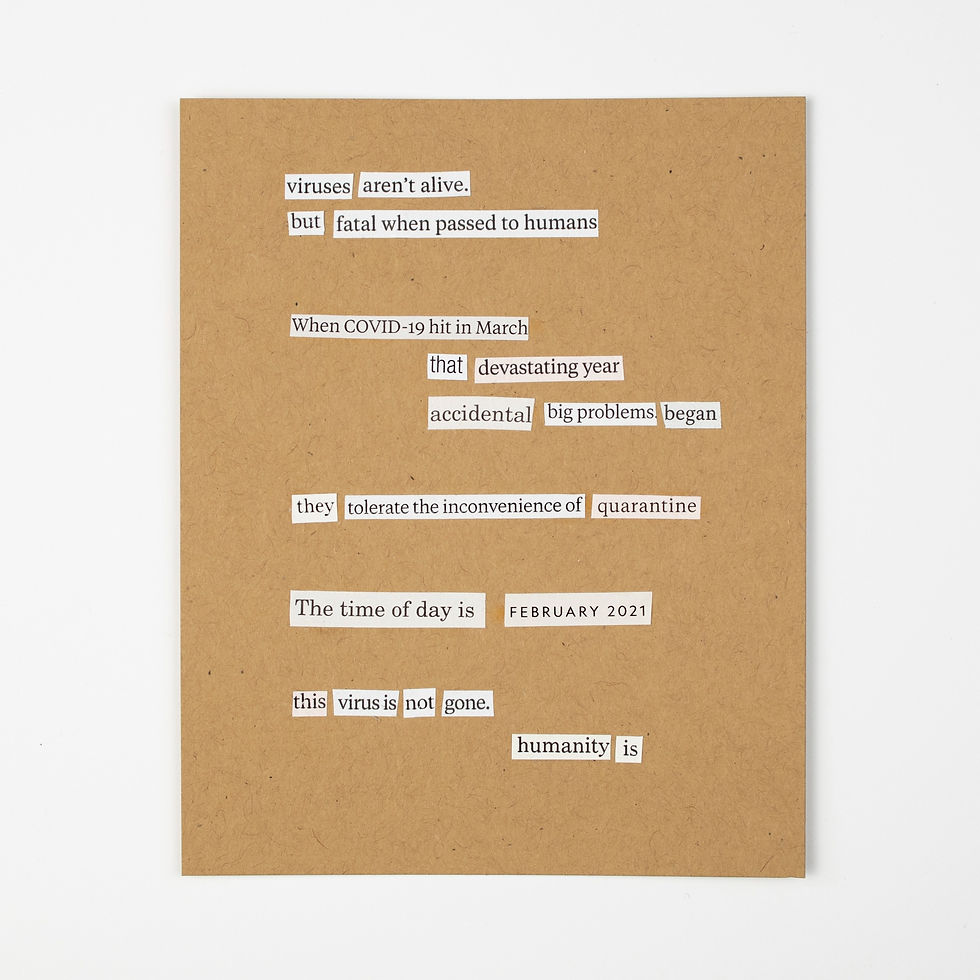 viruses aren't alive.
but fatal when passed to humans
When COVID-19 hit in March
that devastating year
accidental big problems. began
they tolerate the inconvenience of quarantine
The time of day is FEBRUARY 2021
this virus is not gone.
humanity is